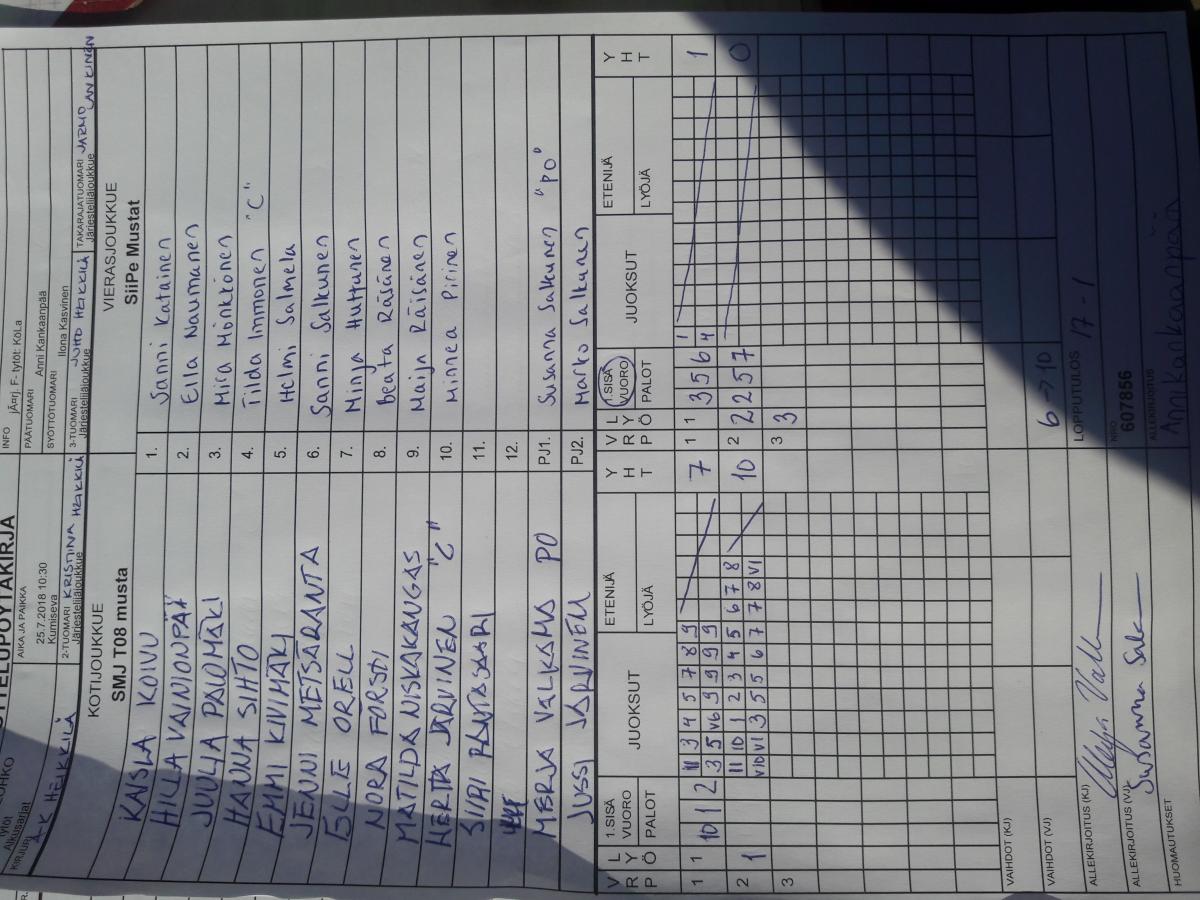 OTTELUPÖYTÄKIRJA
AIKA JA PAIKKA
25.7.2018 10:30
Kumiseva
INFO
F- tytöt: KoLa
PÄÄTUOMARI Anni Kankaanpää
SYÖTTÖTUOMARI Ilona Kasvinen
KIRJURI
A-K HEIKKILÄ
2-TUOMARI KRISTIINA HEIKKILÄ
Järjestelijäloukkue
3-TUOMARI JUHO HEIKKILÄ
Järjestelijäloukkue
TAKARAJATUOMARI JARMO LANKINEN
Järjestelijäloukkue
KOTIJOUKKUE
SMJ T08 musta
VIERASJOUKKUE
SiiPe Mustat
KAISLA KOIVU 1. Sanni Katainen
HILLA VAINIONPÄÄ 2. Ella Naumanen
JUULIA PALOMÄKI 3. Mira Mönkkönen
HANNA SIHTO 4. Tilda Immonen "C"
EMMI KIVIMÄKI 5. Helmi Salmela
JENNI METSÄRANTA 6. Sanni Salkunen
ORELL 7. Minja Huttunen
NORA FORSTI 8. Beata Räsänen
MATILDA NISKAKANGAS 9. Maija Räisänen
HERTTA JÄRVINEN "C" 10. Minnea Pirinen
SIIRI RANTASAARI 11.
12.
MERJA VALKAMA PO PJ1. Susanna Salkunen "PO"
JUSSI JÄRVINEN PJ2. Marko Salkunen
VRP LYÖ 1.SISÄVUORO PALOT JUOKSUT ETENIJÄ LYÖJÄ YHT VRP LYÖ 1.SISÄVUORO PALOT JUOKSUT ETENIJÄ LYÖJÄ YHT
1 1 10 1 2 11 3 4 5 7 8 9 7 1 1 3 5 6 1 1
3 5 V6 9 9 9 9 4
2 1 11 10 1 2 3 4 5 6 7 8 10 2 2 2 5 7 0
V10 V1 3 5 5 6 7 7 8 V1
3 3 3
VAIHDOT (KJ)
VAIHDOT (VJ) 6->10
ALLEKIRJOITUS (KJ)
LOPPUTULOS 17 - 1
ALLEKIRJOITUS (VJ) Susanna Salk
NRO
607856
HUOMAUTUKSET
ALLEKIRJOITUS
Anni Kankaanpää